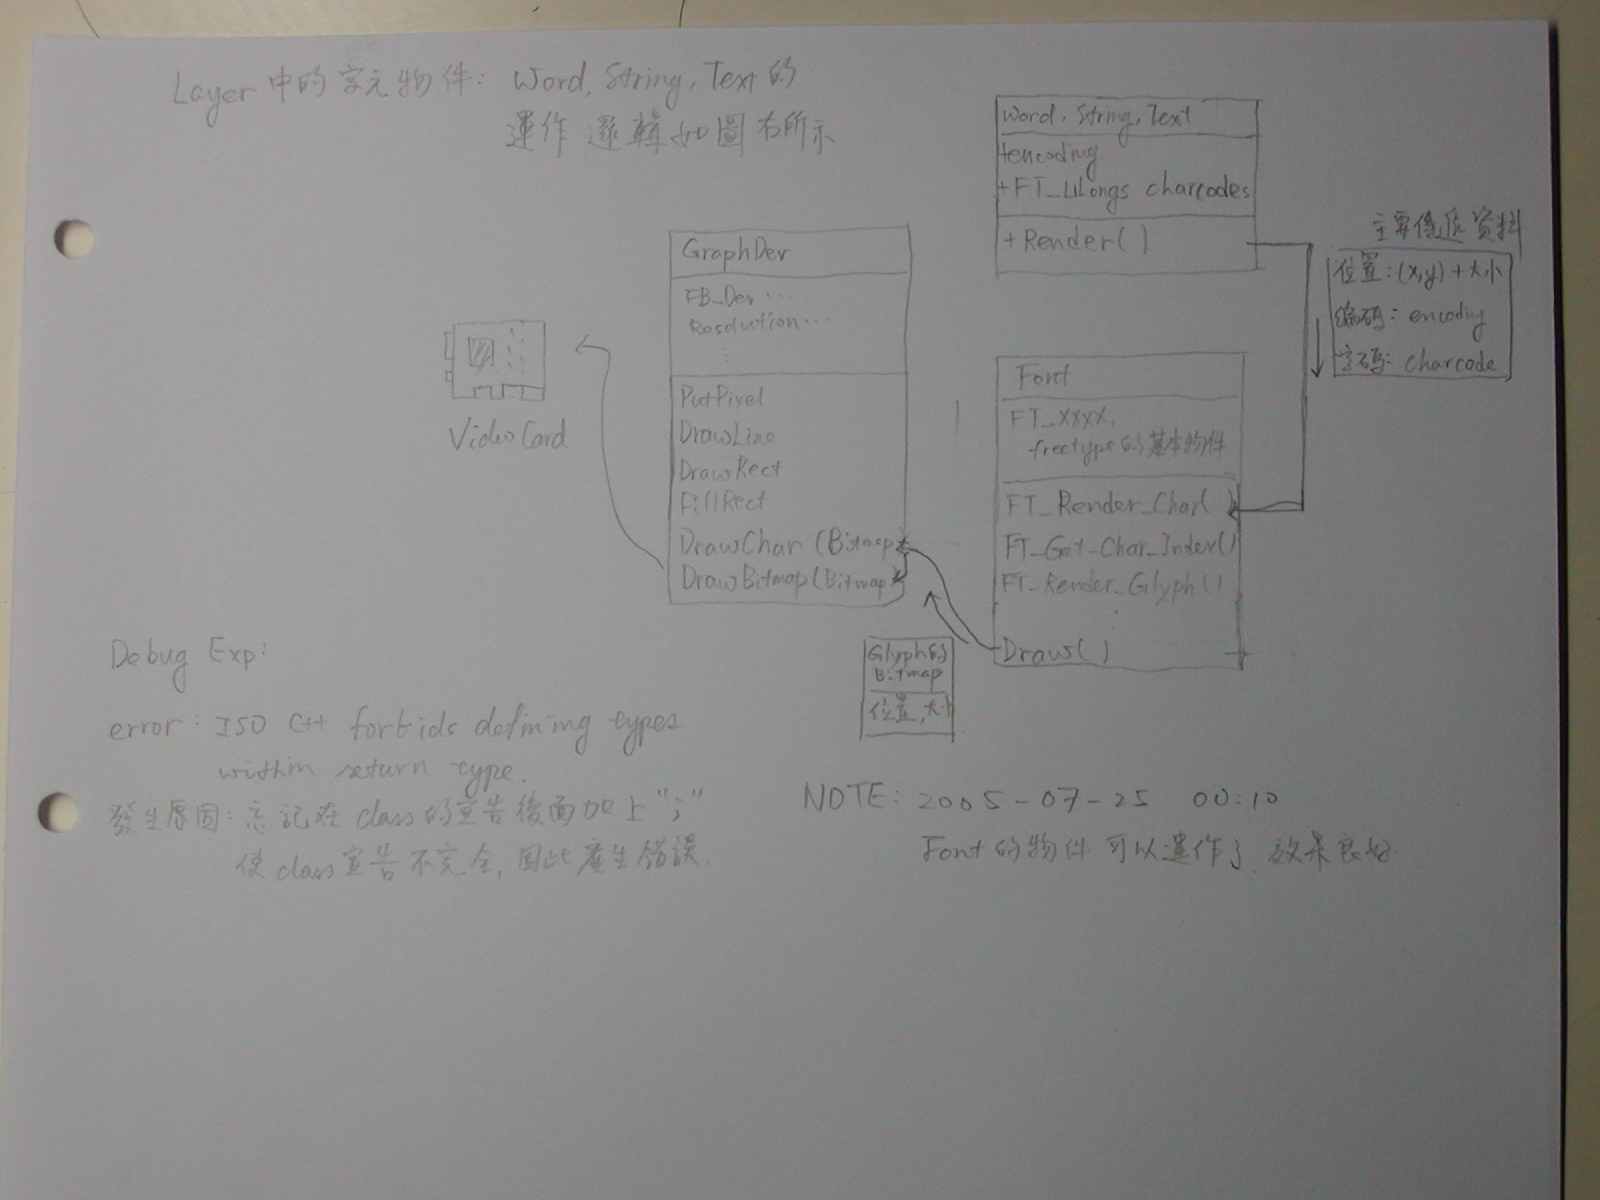 Layer 中的字元物件: Word, String, Text 的
運作邏輯如圖右所示
Word, String, Text
+encoding
+FT_ULongs charcodes
+Render()
主要傳遞資料
位置:(x,y)+大小
編碼: encoding
字碼: charcode
GraphDev
FB_Dev ...
Resolution...
PutPixel
DrawLine
DrawRect
FillRect
DrawChar (Bitmap
DrawBitmap(Bitmap
Video Card
Font
FT_XXXX,
freetype的基本物件
FT_Render_Char(
FT_Get_Char_Index()
FT_Render_Glyph()
Draw()
Glyph的
Bitmap
位置,大小
Debug Exp:
error: ISO C++ forbids defining types
within return type.
發生原因: 忘記在 class 的宣告後面加上 ";"
使 class 宣告不完全, 因此產生錯誤.
NOTE: 2005-07-25 00:10
Font 的物件可以運作了 效果良好.